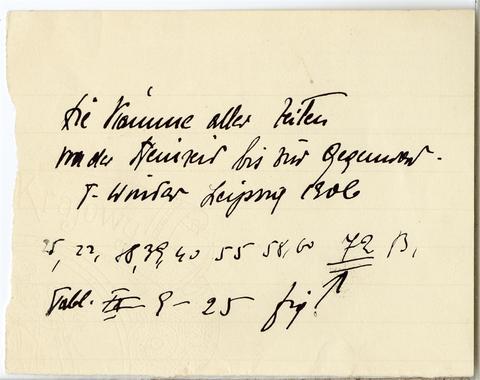 Die Kämme aller Zeiten
von der Steinzeit bis zur Gegenwart.
T. Winter Leipzig 1906
22, 38, 39, 40 55 58, 60 72 B,
Tabl. III 9 - 25 fig.